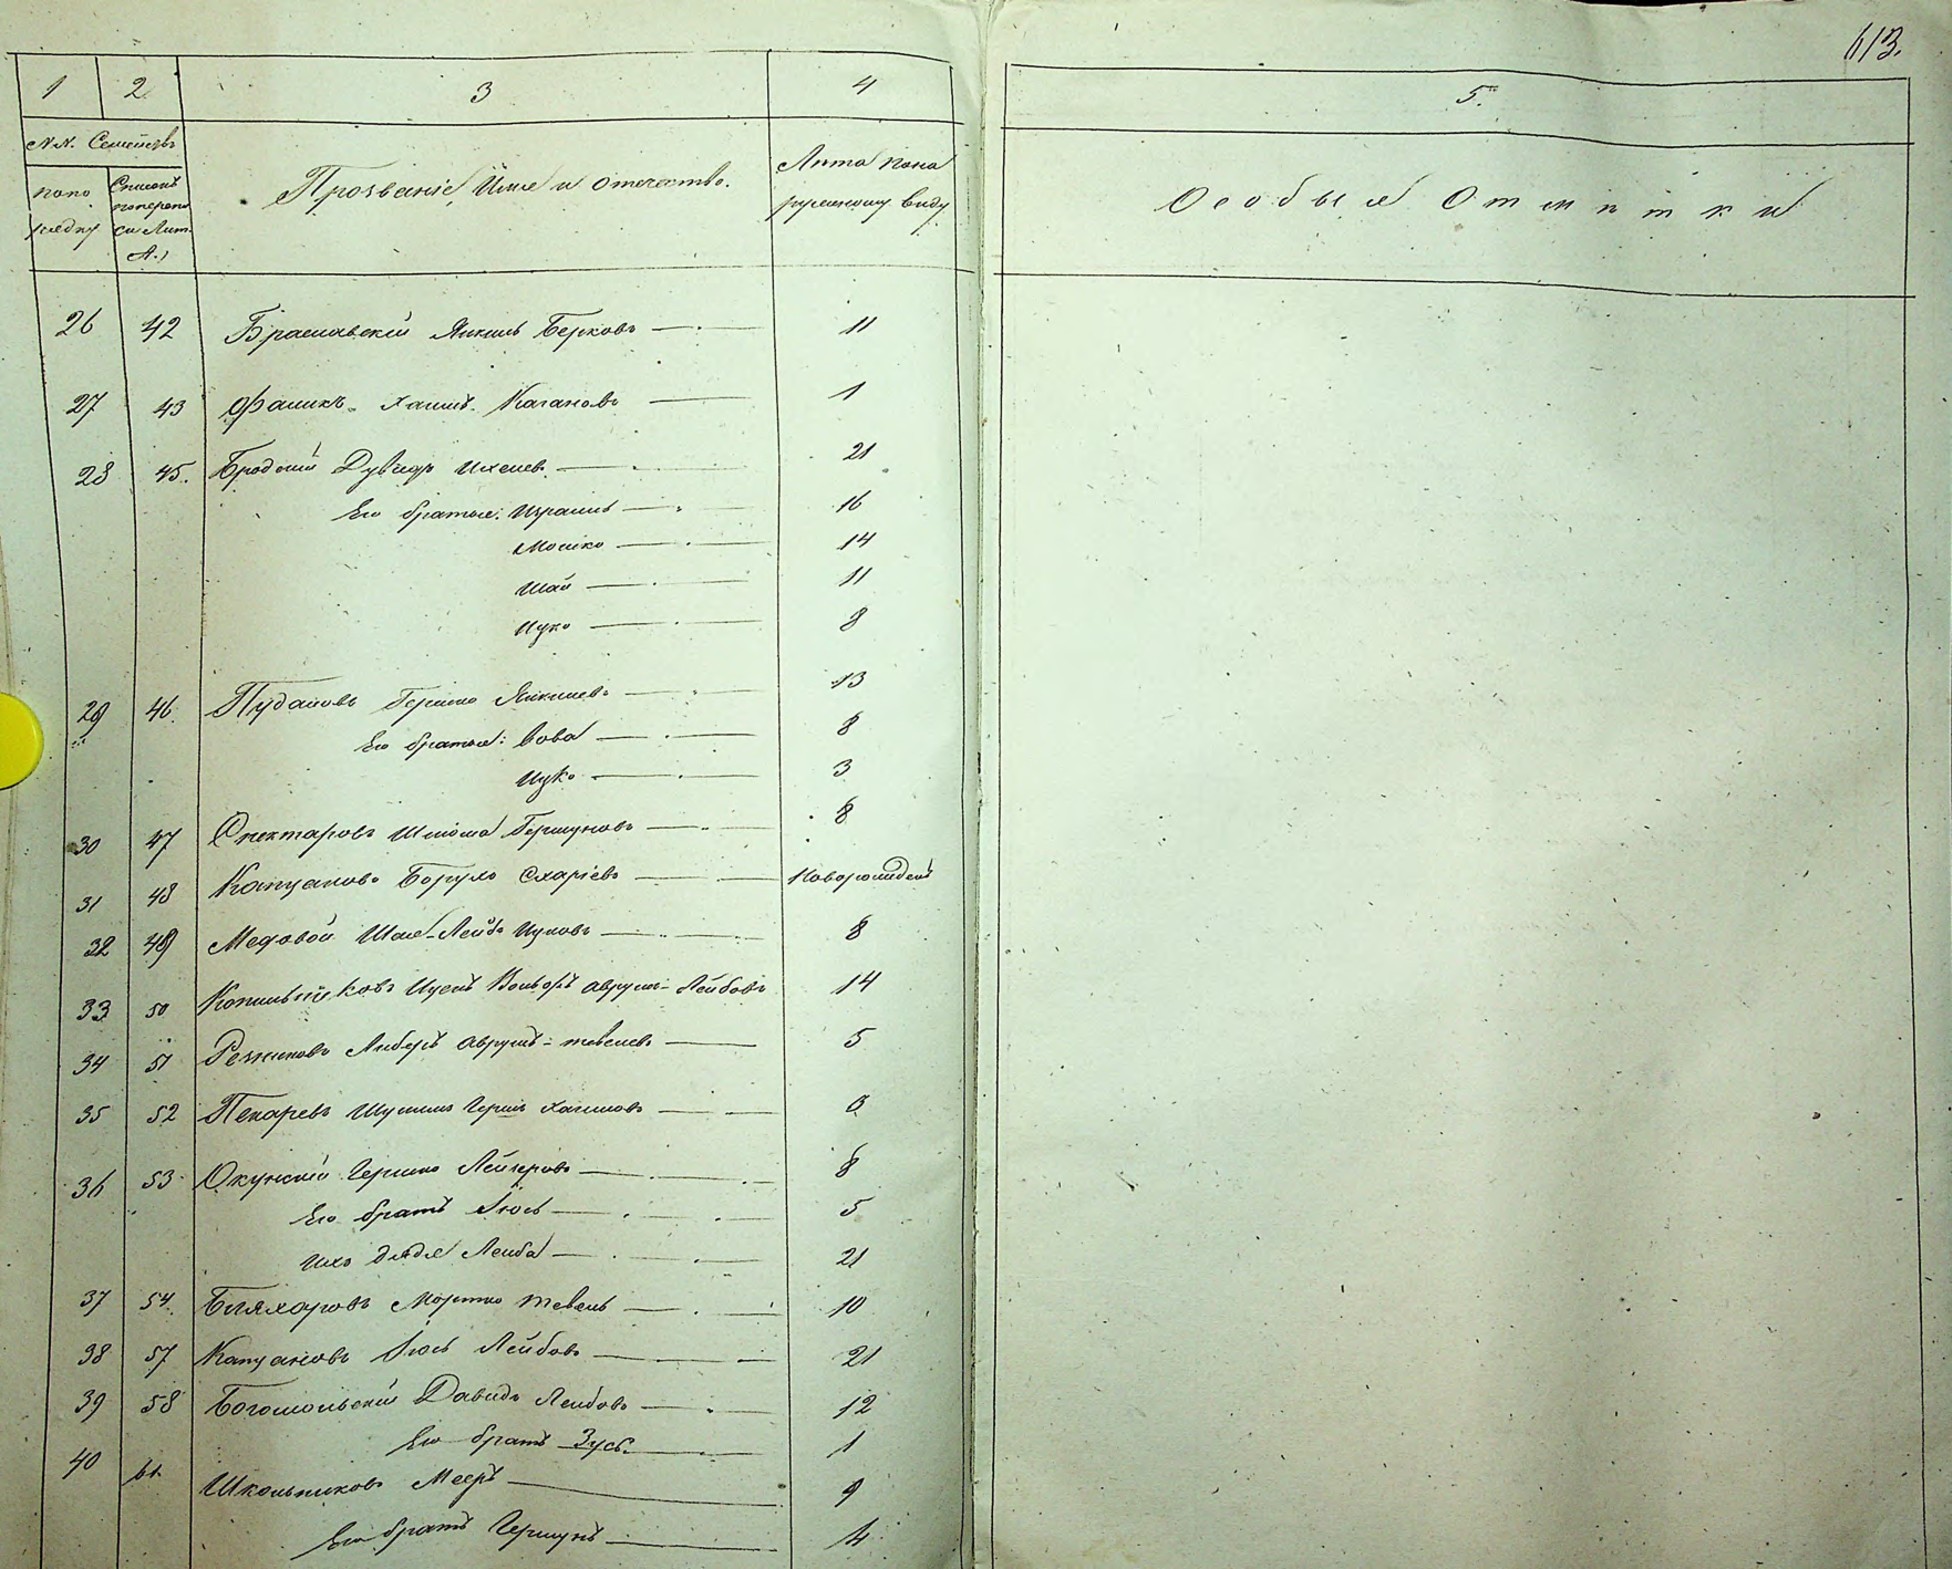 613.
1 2 3 4 5.
№№. Семействъ
по по рядку
Списокъ по перепи си Лит. А.)
Прозваніе, Имя и отечество.
Лѣта по на ружному виду
Особыя Отмѣтки
26 42 Браславскій Янкель Берковъ — 11
27 43 Фаликъ Хаимъ Кагановъ — 1
28 45. Бродскій Дувидъ Ихелев. — 21
Его братья: Израиль — 16
Мошко — 14
Шай — 11
Ицко — 8
29 46. Пудаловъ Гершко Янкелевъ — 13
Его братья: Вова — 8
Ицко — 3
30 47 Спектаровъ Шлиома Гершуновъ — 8
31 48 Капцановъ Борухъ Схаріевъ — Новорожденъ
32 49 Медовой Шае-Лейбъ Ицковъ — 8
33 50 Ицекъ Вольфъ Аврумъ-Лейбовъ 14
34 51 Резниковъ Либеръ Аврумъ-Тевелевъ — 5
35 52 Пекаревъ Шулимъ Гершъ Хаимовъ —
36 53 Окунскій Гершко Лейзеровъ — 8
Его братъ Іось — 5
Ихъ дядя Лейба — 21
37 54. Бляхаровъ Мортко Тевель — 10
38 57 Капцановъ Іось Лейбовъ — 21
39 58 Богомольскій Давидъ Лейбовъ — 12
Его братъ Зусь. — 1
40 61. Школьниковъ Мееръ — 9
Его братъ Гершунъ — 4